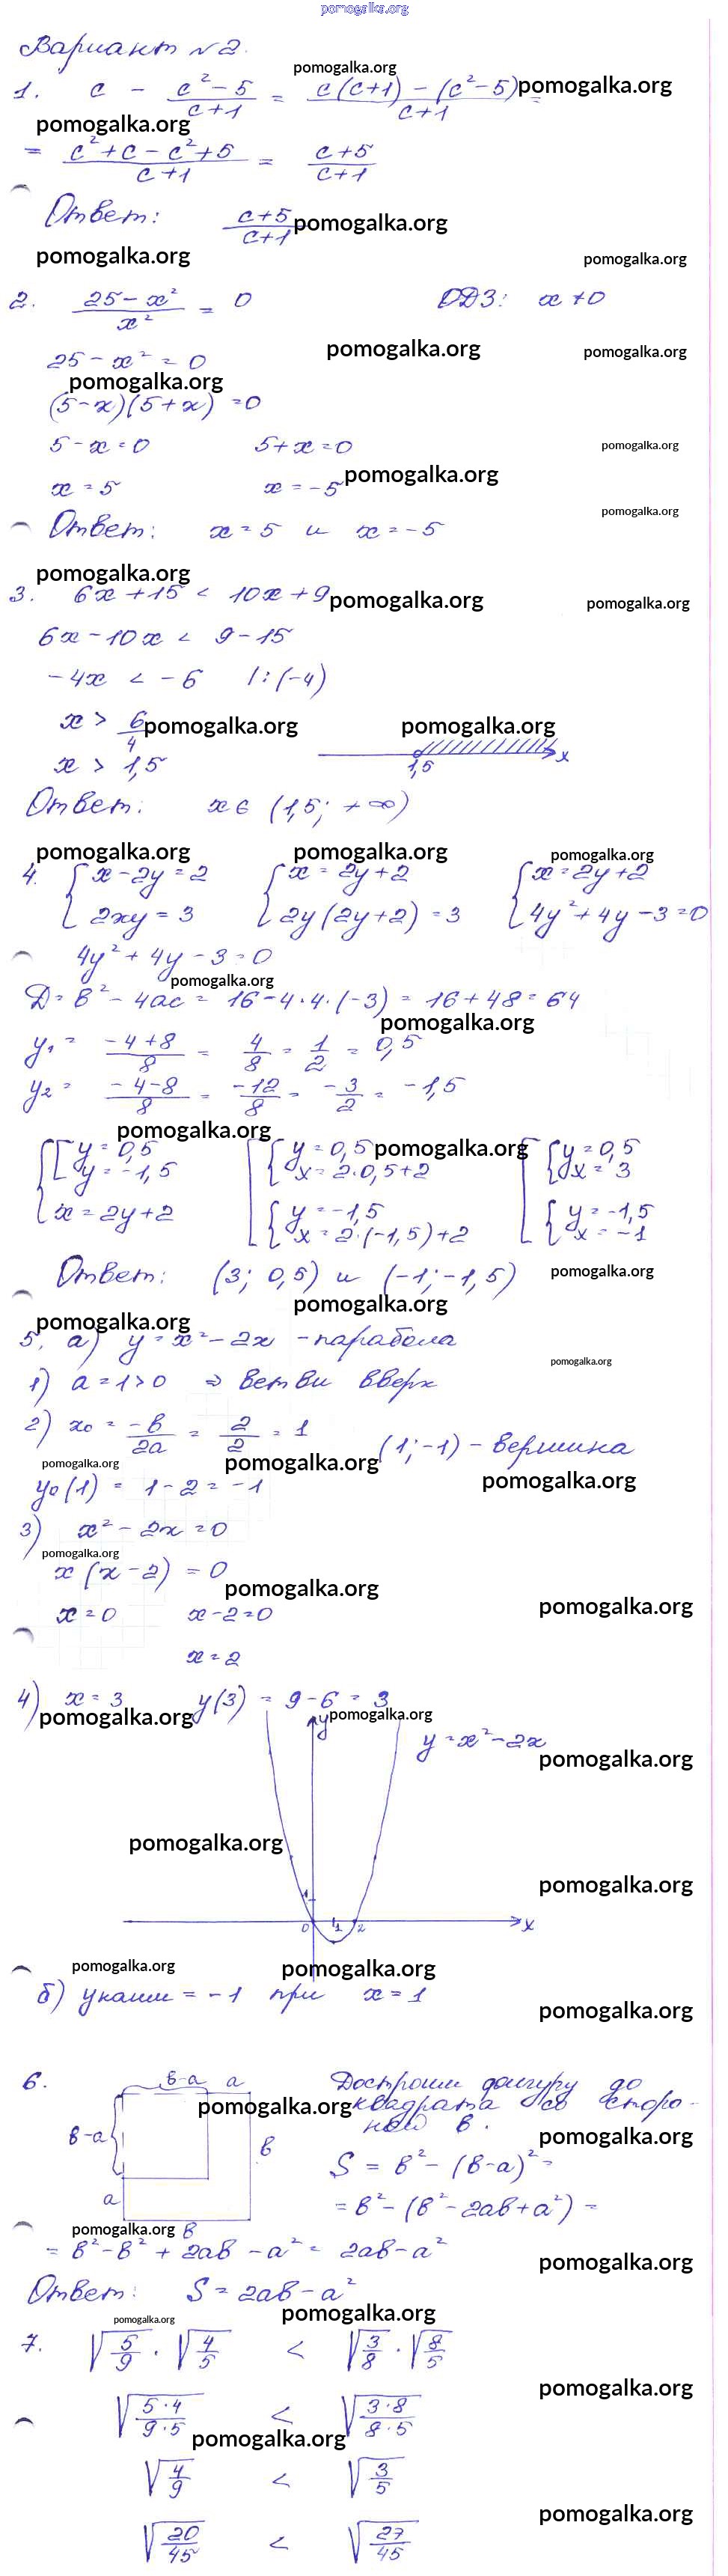 pomogalka.org
Вариант №2.
pomogalka.org
1. c - (c² - 5)/(c+1) = (c(c+1) - (c² - 5))/(c+1) = pomogalka.org
pomogalka.org
= (c² + c - c² + 5)/(c+1) = (c+5)/(c+1)
Ответ: (c+5)/(c+1) pomogalka.org
pomogalka.org pomogalka.org
2. (25 - x²)/x² = 0 ОДЗ: x ≠ 0
25 - x² = 0 pomogalka.org pomogalka.org
pomogalka.org
(5-x)(5+x) = 0
5 - x = 0 5 + x = 0 pomogalka.org
x = 5 x = -5 pomogalka.org
Ответ: x = 5 и x = -5 pomogalka.org
pomogalka.org
3. 6x + 15 < 10x + 9 pomogalka.org pomogalka.org
6x - 10x < 9 - 15
-4x < -6 |:(-4)
x > 6/4 pomogalka.org pomogalka.org
x > 1,5 1,5 x
Ответ: x ∈ (1,5; +∞)
pomogalka.org pomogalka.org pomogalka.org
4. { x - 2y = 2 { x = 2y + 2 { x = 2y + 2
{ 2xy = 3 { 2y(2y+2) = 3 { 4y² + 4y - 3 = 0
4y² + 4y - 3 = 0
pomogalka.org
Д = в² - 4ac = 16 - 4·4·(-3) = 16 + 48 = 64
pomogalka.org
y₁ = (-4+8)/8 = 4/8 = 1/2 = 0,5
y₂ = (-4-8)/8 = -12/8 = -3/2 = -1,5
pomogalka.org
{ [ y = 0,5 [ { y = 0,5 pomogalka.org [ { y = 0,5
y = -1,5 x = 2·0,5+2 x = 3
x = 2y + 2 { y = -1,5 { y = -1,5
x = 2·(-1,5)+2 x = -1
Ответ: (3; 0,5) и (-1; -1,5) pomogalka.org
pomogalka.org
pomogalka.org
5. а) y = x² - 2x - парабола
pomogalka.org
1) a = 1 > 0 ⇒ ветви вверх
2) x₀ = -в/2a = 2/2 = 1 (1; -1) - вершина
pomogalka.org pomogalka.org pomogalka.org
y₀(1) = 1 - 2 = -1
3) x² - 2x = 0
pomogalka.org
x(x-2) = 0 pomogalka.org
x = 0 x - 2 = 0 pomogalka.org
x = 2
4) x = 3 y(3) = 9 - 6 = 3
pomogalka.org y pomogalka.org
y = x² - 2x
pomogalka.org
pomogalka.org
pomogalka.org
1
0 1 2 x
pomogalka.org pomogalka.org
б) yнаим = -1 при x = 1 pomogalka.org
6. в-a a Достроим фигуру до
pomogalka.org квадрата со сторо-
в-a в ной в. pomogalka.org
S = в² - (в-a)² =
a = в² - (в² - 2aв + a²) =
pomogalka.org в
= в² - в² + 2aв - a² = 2aв - a² pomogalka.org
Ответ: S = 2aв - a²
pomogalka.org pomogalka.org
7. √(5/9) · √(4/5) < √(3/8) · √(8/5)
pomogalka.org
√(5·4/9·5) < √(3·8/8·5)
pomogalka.org
√(4/9) < √(3/5)
pomogalka.org
√(20/45) < √(27/45)